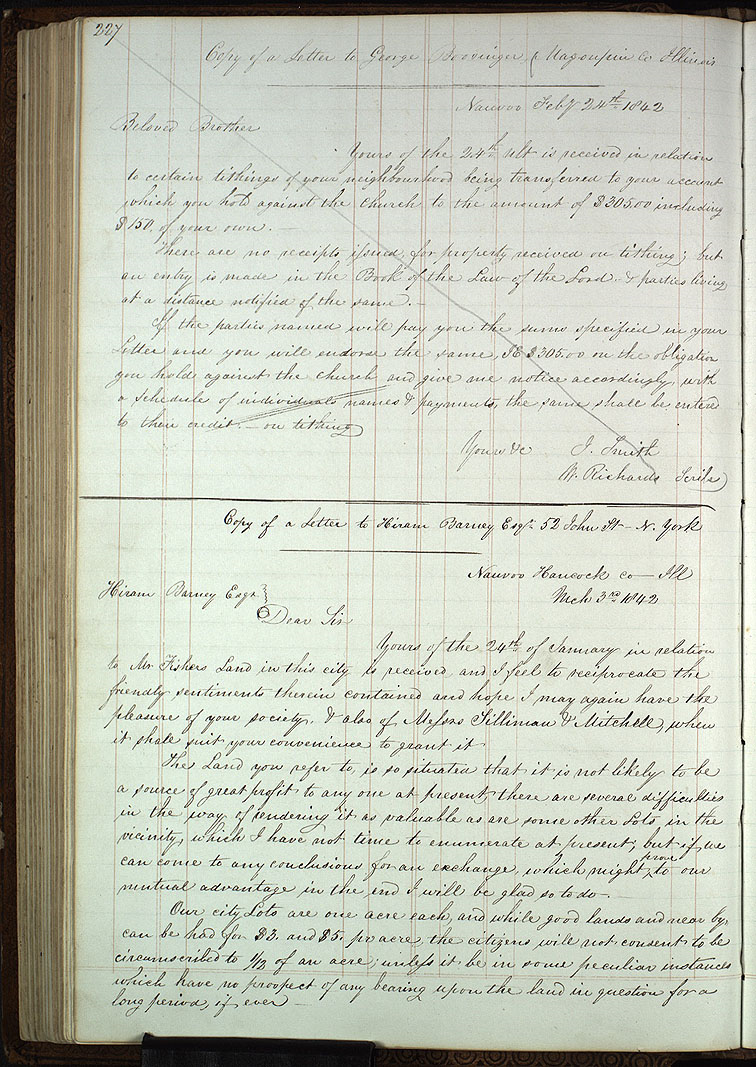 227
Copy of a Letter to George Boosinger, Magoupin Co Illinois
Nauvoo Feby 24th 1842
Beloved Brother
Yours of the 24th ult is received in relation
to certain tithings of your neighbourhood being transferred to your account
which you hold against the church to the amount of $305.00 including
$150, of your own. —
There are no receipts issued, for property received on tithing; but
an entry is made in the Book of the Law of the Lord. & parties living
at a distance notified of the same. —
If the parties named will pay you the sums specified in your
Letter and you will endorse the same, $305.00 on the obligation
you hold against the church and give me notice accordingly, with
a schedule of individuals names & payments, the same shall be entered
to their credit. — on tithing
Yours &c J. Smith
W. Richards Scribe
Copy of a Letter to Hiram Barney Esqr. 52 John St — N. York
Nauvoo Hancock co — Ill
Mch 3rd 1842
Hiram Barney Esqr
Dear Sir
Yours of the 24th of January in relation
to Mr Fishers Land in this city is received and I feel to reciprocate the
friendly sentiments therein contained and hope I may again have the
pleasure of your society, & also of Messrs Silliman & Mitchell, when
it shall suit your convenience to grant it
The Land you refer to, is so situated that it is not likely to be
a source of great profit to any one at present, there are several difficulties
in the way of rendering it as valuable as are some other Lots, in the
vicinity, which I have not time to enumerate at present; but if we
can come to any conclusions for an exchange, which might prove to our
mutual advantage in the end I will be glad so to do —
Our city Lots are one acre each, and while good lands and near by,
can be had for $3. and $5. pr acre, the citizens will not consent to be
circumscribed to 1/3 of an acre; unless it be in some peculiar instances
which have no prospect of any bearing upon the land in question for a
long period, if ever —